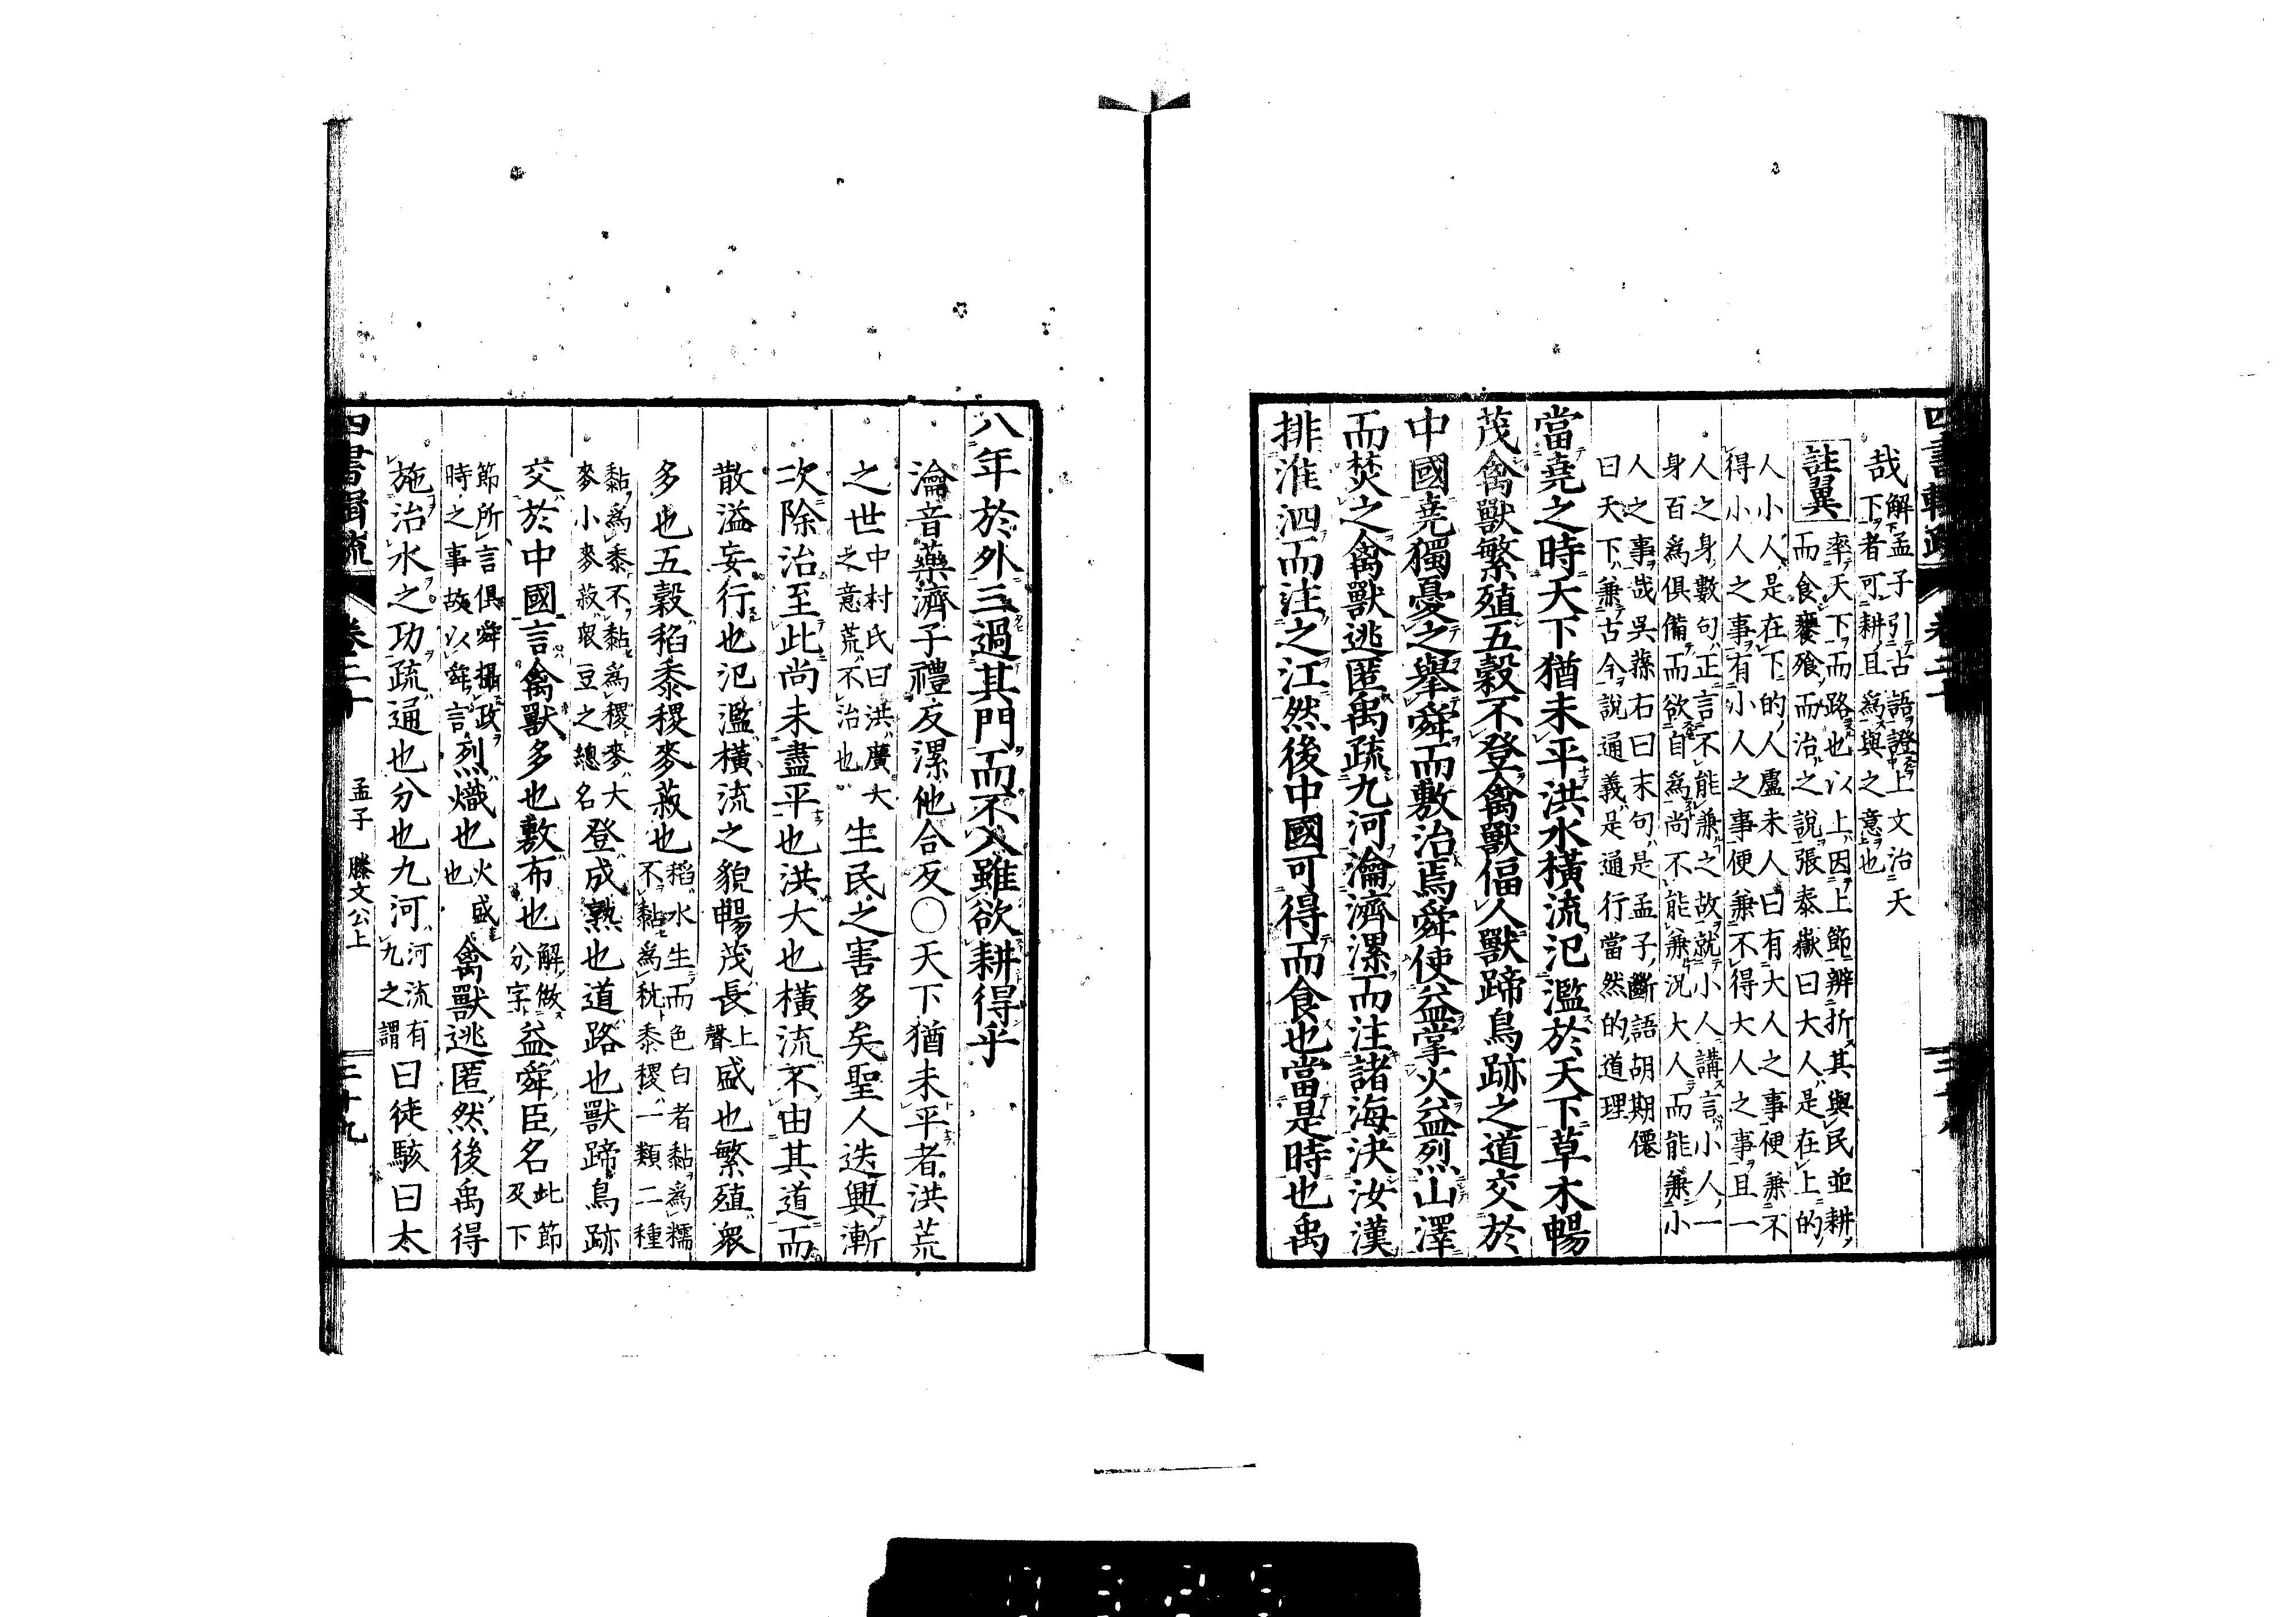 哉解孟子引古語證上文治天
下者可耕且爲與之意也
註翼率天下而路也以上因上節辨折其與民並耕
而食饔飱而治之說張泰嶽曰大人是在上的
人小人是在下的人盧未人曰有大人之事便兼不
得小人之事有小人之事便兼不得大人之事且一
人之身數句正言不能兼之故就小人講言小人一
身百爲俱備而欲自爲尚不能兼況大人而能兼小
人之事哉吳蓀右曰末句是孟子斷語胡期僊
曰天下兼古今說通義是通行當然的道理
當堯之時天下猶未平洪水橫流氾濫於天下草木暢
茂禽獸繁殖五穀不登禽獸偪人獸蹄鳥跡之道交於
中國堯獨憂之舉舜而敷治焉舜使益掌火益烈山澤
而焚之禽獸逃匿禹疏九河瀹濟漯而注諸海決汝漢
排淮泗而注之江然後中國可得而食也當是時也禹
八年於外三過其門而不入雖欲耕得乎
瀹音藥濟子禮反漯他合反〇天下猶未平者洪荒
之世中村氏曰洪廣大
之意荒不治也生民之害多矣聖人迭興漸
次除治至此尚未盡平也洪大也橫流不由其道而
散溢妄行也氾濫橫流之貌暢茂長上
聲盛也繁殖衆
多也五穀稻黍稷麥菽也稻水生而色白者黏爲糯
不黏爲秔黍稷一類二種
黏爲黍不黏爲稷麥大
麥小麥菽衆豆之總名登成熟也道路也獸蹄鳥跡
交於中國言禽獸多也敷布也解做
分字益舜臣名此節
及下
節所言俱舜攝政
時之事故以舜言烈熾也火盛
也禽獸逃匿然後禹得
施治水之功疏通也分也九河河流有
九之謂曰徒駭曰太
四書輯疏 卷二十 孟子 滕文公上 二十九